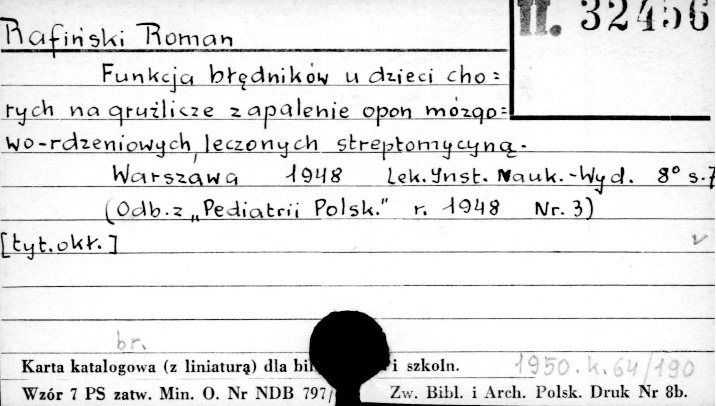 II. 32456
Rafiński Roman
Funkcja błędników u dzieci cho=
rych na gruźlicze zapalenie opon mózgo=
wo-rdzeniowych, leczonych streptomycyną.
Warszawa 1948 Lek. Inst. Nauk.-Wyd. 8° s. 7
(Odb. z „Pediatrii Polsk." r. 1948 Nr. 3)
[tyt. okł.]
br.
Karta katalogowa (z liniaturą) dla i szkoln. 1950.k.64/190
Wzór 7 PS zatw. Min. O. Nr NDB 797/ Zw. Bibl. i Arch. Polsk. Druk Nr 8b.